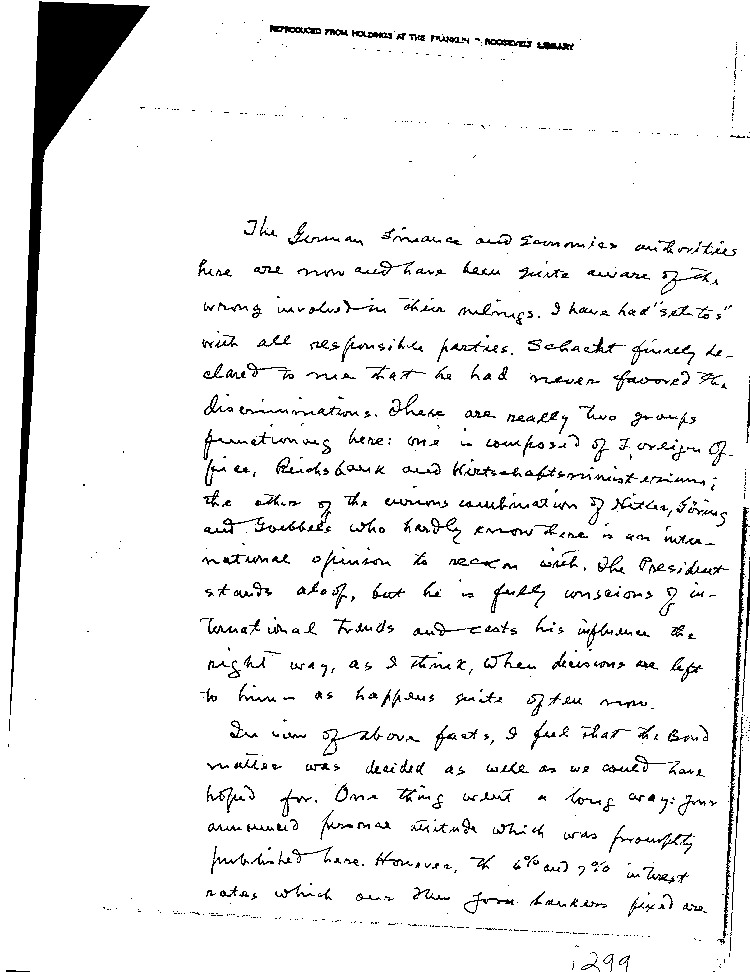 REPRODUCED FROM HOLDINGS AT THE FRANKLIN D. ROOSEVELT LIBRARY
The German Finance and Economics authorities
here are now and have been quite aware of the
wrong involved in their rulings. I have had "set-to's"
with all responsible parties. Schacht finally de-
clared to me that he had never favored the
discriminations. There are really two groups
functioning here: one is composed of Foreign Of-
fice, Reichsbank and Wirtschaftsministerium;
the other of the curious combination of Hitler, Göring
and Goebbels who hardly know there is an inter-
national opinion to reckon with. The President
stands aloof, but he is fully conscious of in-
ternational trends and casts his influence the
right way, as I think, when decisions are left
to him - as happens quite often now.
In view of above facts, I feel that the Bond
matter was decided as well as we could have
hoped for. One thing went a long way: your
announced personal attitude which was promptly
published here. However, th 6% and 7% interest
rates which our New York bankers fixed are
1299